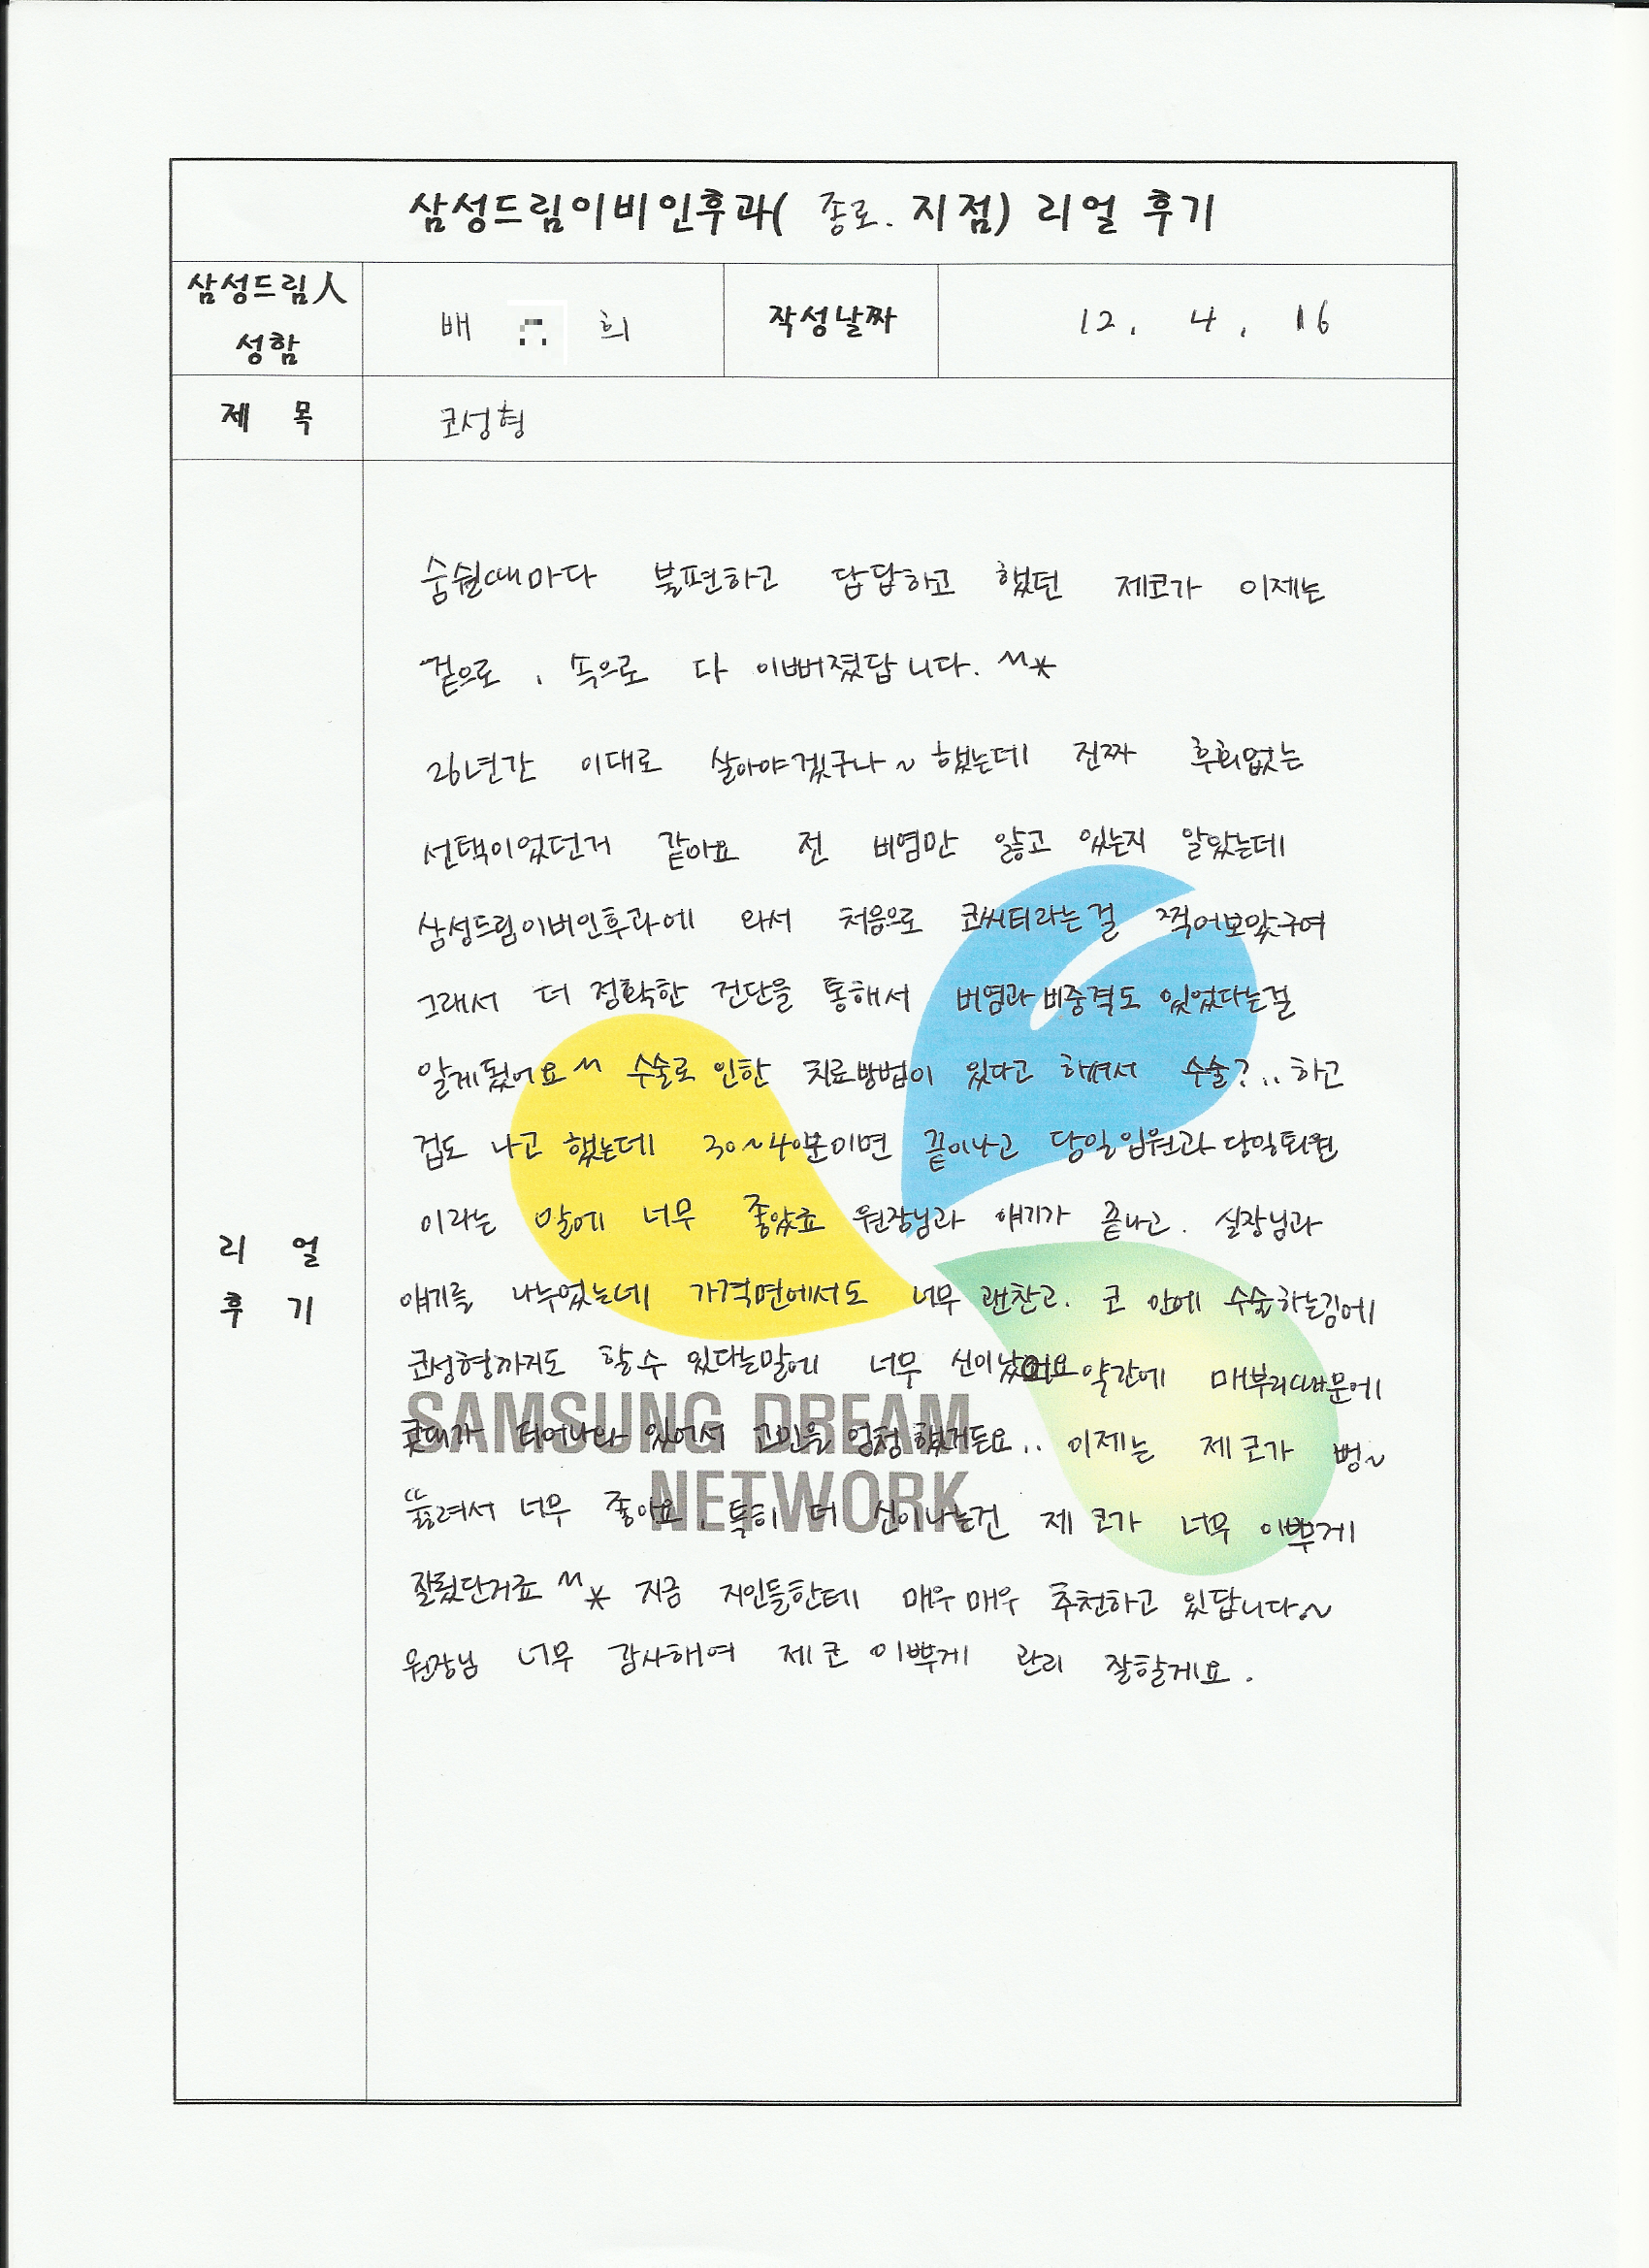 삼성드림이비인후과( 종로. 지점) 리얼 후기
삼성드림人 성함
배 희
작성날짜
12. 4. 16
제 목
코성형
리 얼 후 기
숨쉴때마다 불편하고 답답하고 했던 제코가 이제는
겉으로, 속으로 다 이뻐졌답니다. ^^*
26년간 이대로 살아야겠구나~ 했는데 진짜 후회없는
선택이었던거 같아요 전 비염만 앓고 있는지 알았는데
삼성드림이비인후과에 와서 처음으로 코씨티라는걸 찍어보았구여
그래서 더 정확한 진단을 통해서 비염과 비중격도 있었다는걸
알게됬어요 ^^ 수술로 인한 치료방법이 있다고 하셔서 수술?.. 하고
겁도 나고 했는데 30~40분이면 끝이나고 당일입원과 당일퇴원
이라는 말에 너무 좋았죠 원장님과 얘기가 끝나고. 실장님과
얘기를 나누었는데 가격면에서도 너무 괜찮고. 코 안에 수술하는김에
코성형까지도 할수 있다는말에 너무 신이났어요 약간에 매부리때문에
콧대가 튀어나와 있어서 고민을 엄청 했거든요.. 이제는 제 코가 뻥~
뚫려서 너무 좋아요. 특히 더 신이나는건 제 코가 너무 이쁘게
잘됬단거죠 ^^* 지금 지인들한테 매우매우 추천하고 있답니다.~
원장님 너무 감사해여 제코 이쁘게 관리 잘할게요.
SAMSUNG DREAM
NETWORK